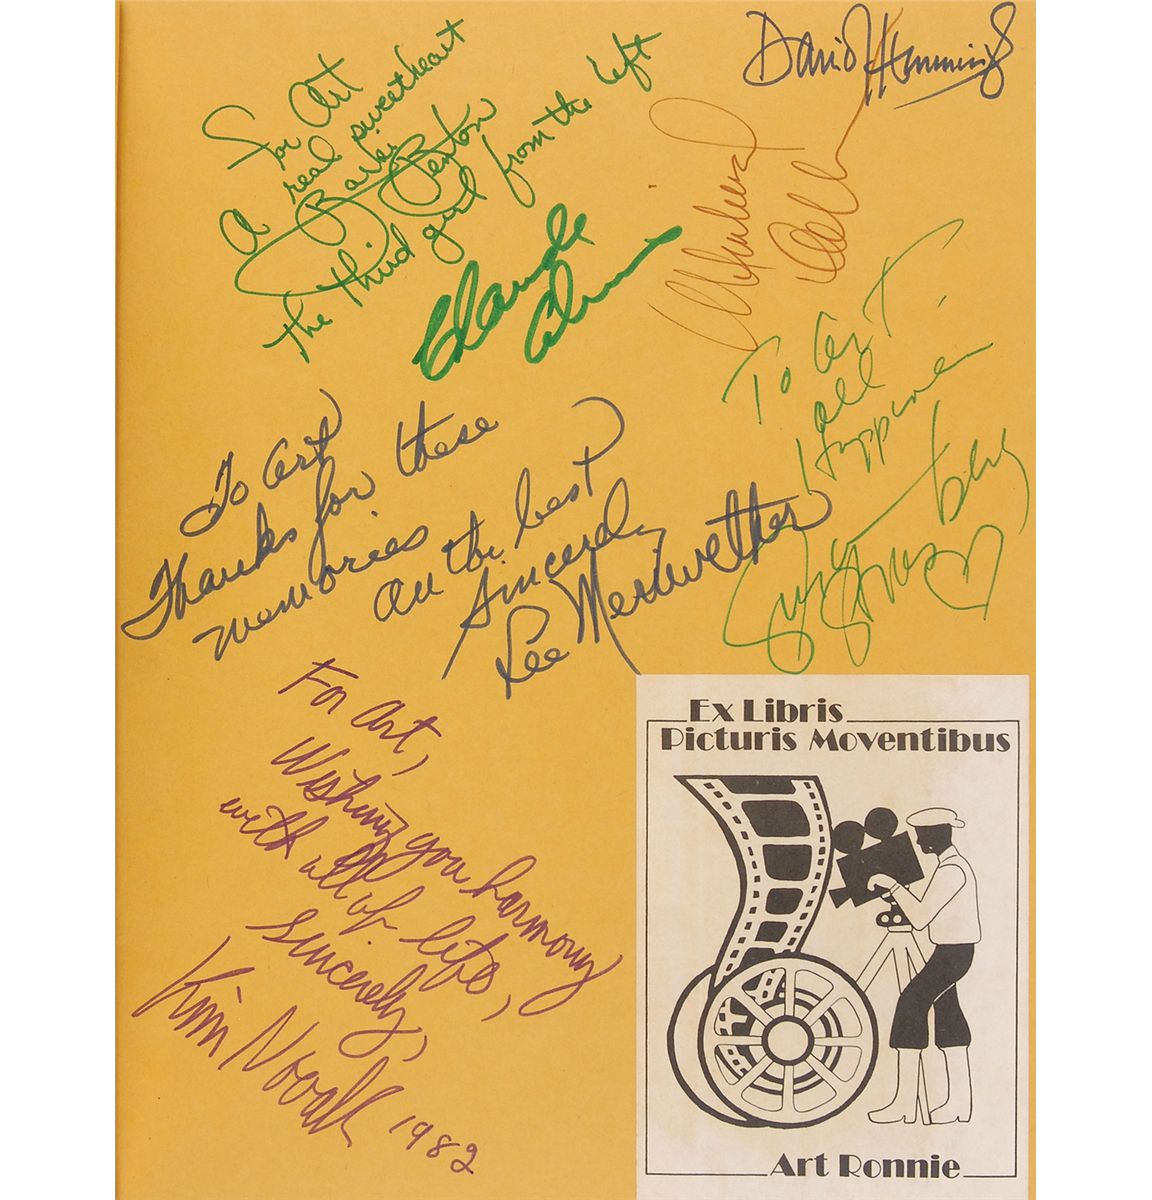 David Hemmings
For Art
a real sweetheart
Barbi Benton
the third girl from the left
Claude
Michael
To Art
all
Happiness
To Art
Thanks for these
memories
All the best
Sincerely
Lee Meriwether
For Art,
Wishing you harmony
with all of life,
Sincerely,
Kim Novak 1982
Ex Libris
Picturis Moventibus
Art Ronnie